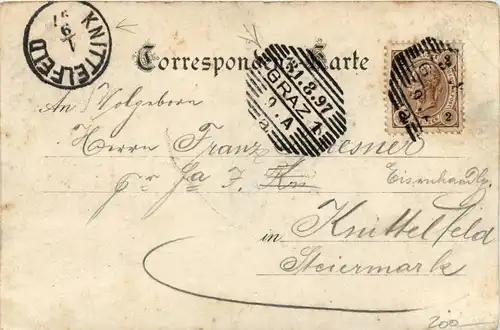 KNITTELFELD
1/9
97
Correspondenz-Karte
31.8.97
GRAZ 1
9.A
a
2 2
An Wolgeborn
Herrn Franz
pr Ja J. Eisenhandlg
in Knittelfeld
Steiermark
200